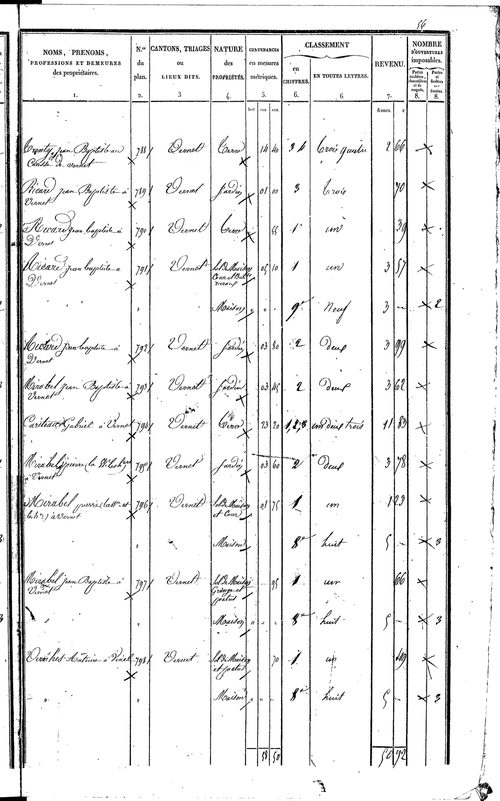 56
NOMS, PRENOMS,
PROFESSIONS ET DEMEURES
des propriétaires.
1.
N.os
du
plan.
2.
CANTONS, TRIAGES
ou
LIEUX DITS.
3
NATURE
des
PROPRIÉTÉS.
4.
CONTENANCES
en mesures
métriques.
5.
CLASSEMENT
en
CHIFFRES.
6.
EN TOUTES LETTRES.
6
REVENU.
7.
NOMBRE
D'OUVERTURES
imposables.
8.
8.
francs. c
jean Baptiste
de vernet 788 Vernet Terre 14 40 3 4 Trois quatre 2 66
Ricard jean Baptiste à
Vernet 789 Vernet Jardin 01 00 3 Trois 70
Ricard jean baptiste à
Vernet 790 Vernet Terre 55 1 un 39
Ricard jean baptiste à
Vernet 791 Vernet Sol de Maison 05 10 1 un 3 57
Maison 9e Neuf 3 2
Ricard jean baptiste à
Vernet 792 Vernet Jardin 03 80 2 Deux 3 99
Mirabel jean Baptiste à
Vernet 793 Vernet Jardin 03 45 2 Deux 3 62
Gabriel à Vernet 794 Vernet Terre 23 20 1, 2, 3 un deux trois 11 83
Mirabel pierre
à Vernet 795 Vernet Jardin 03 60 2 Deux 3 78
Mirabel pierre
à Vernet 796 Vernet Sol de Maison
et Cour 01 75 1 un 1 23
Maison 8e huit 5 3
Mirabel jean Baptiste à
Vernet 797 Vernet Sol de Maison
Grange et
patus 95 1 un 66
Maison 8e huit 5 3
Antoine à Vernet 798 Vernet Sol de Maison
et patus 70 1 un 49
Maison 8e huit 5 3
58 50 50 92